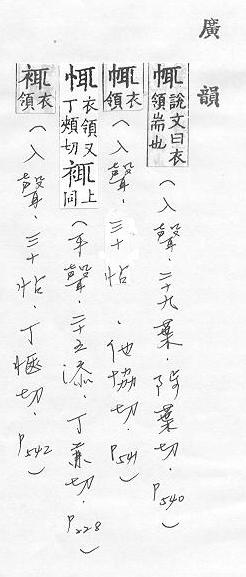 廣韻
㡇說文曰衣領耑也(入聲.二十九葉.陟葉切.P540)
㡇衣領(入聲.三十帖.他協切.P541)
㡇衣領又丁頰切上同(平聲.二十五添.丁兼切.P228)
衣領(入聲.三十帖.丁愜切.P542)